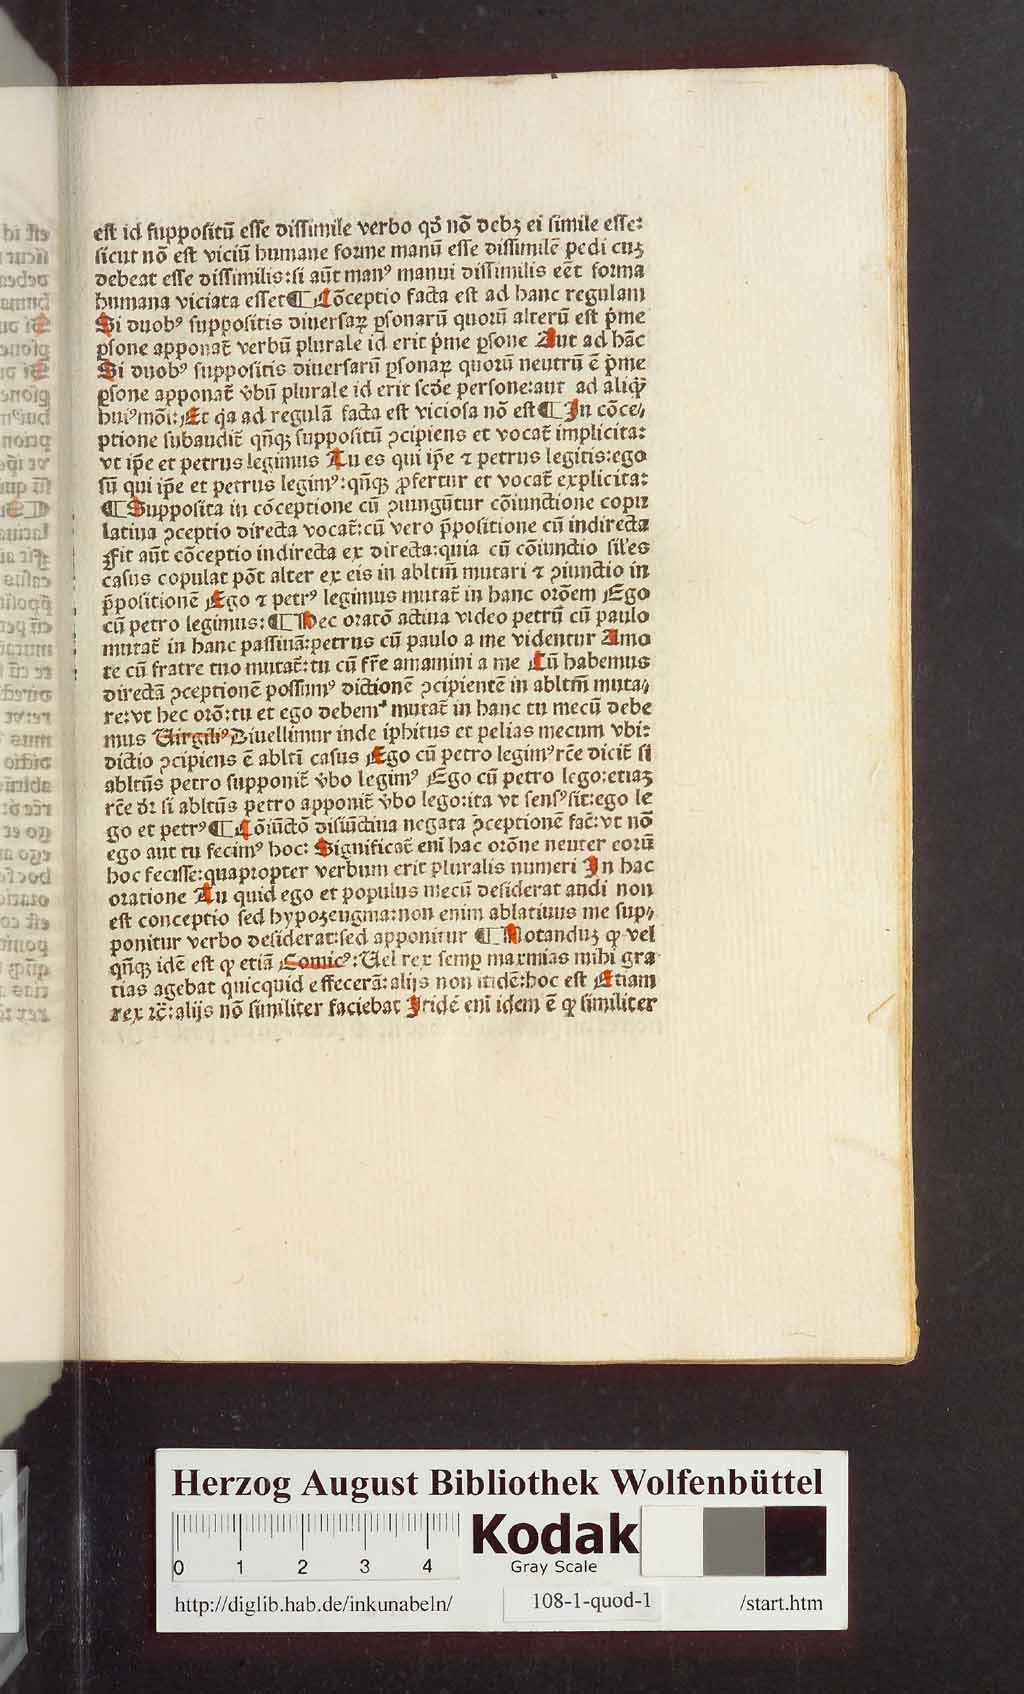 est id suppositū esse dissimile verbo qd̄ nō debꝫ ei simile esse:
sicut nō est viciū humane forme manū esse dissimilē pedi cuꝫ
debeat esse dissimilis: si aūt manꝰ manui dissimilis eēt forma
humana viciata esset ¶ Cōceptio facta est ad hanc regulam
Si duobꝰ suppositis diuersaꝝ ꝑsonarū quorū alterū est p̄me
ꝑsone apponat̄ verbū plurale id erit p̄me ꝑsone Aut ad hāc
Si duobꝰ suppositis diuersarū ꝑsonaꝝ quorū neutrū ē p̄me
ꝑsone apponat̄ v̄bū plurale id erit scd̄e persone: aut ad aliq̄
huiꝰmōi: Et q̄a ad regulā facta est viciosa nō est ¶ In cōce⸗
ptione subaudit̄ qn̄qꝫ suppositū ꝯcipiens et vocat̄ implicita:
vt ip̄e et petrus legimus Tu es qui ip̄e ⁊ petrus legitis: ego
sū qui ip̄e et petrus legimꝰ: qn̄qꝫ ꝓfertur et vocat̄ explicita:
¶ Supposita in cōceptione cū ꝯiungūtur cōiunctione copu
latiua ꝯceptio directa vocat̄: cū vero p̄positione cū indirecta
Fit aūt cōceptio indirecta ex directa: quia cū cōiunctio sil̄es
casus copulat pōt alter ex eis in abltm̄ mutari ⁊ ꝯiunctio in
p̄positionē Ego ⁊ petrꝰ legimus mutat̄ in hanc orōem Ego
cū petro legimus: ¶ Hec oratō actiua video petrū cū paulo
mutat̄ in hanc passiuā: petrus cū paulo a me videntur Amo
te cū fratre tuo mutat̄: tu cū fr̄e amamini a me Cū habemus
directā ꝯceptionē possumꝰ dictionē ꝯcipientē in abltm̄ muta⸗
re: vt hec orō: tu et ego debemꝰ mutat̄ in hanc tu mecū debe
mus Virgiliꝰ Diuellimur inde iphitus et pelias mecum vbi:
dictio ꝯcipiens ē ablti casus Ego cū petro legimꝰ rc̄e dicit̄ si
abltūs petro supponit̄ v̄bo legimꝰ Ego cū petro lego: etiaꝫ
rc̄e dr̄ si abltūs petro apponit̄ v̄bo lego: ita vt sensꝰ sit: ego le
go et petrꝰ ¶ Cōiūctō disiūctiua negata ꝯceptionē fac̄: vt nō
ego aut tu fecimꝰ hoc: Significat̄ eni hac orōne neuter eorū
hoc fecisse: quapropter verbum erit pluralis numeri In hac
oratione Tu quid ego et populus mecū desiderat audi non
est conceptio sed hypozeugma: non enim ablatiuus me sup⸗
ponitur verbo desiderat: sed apponitur ¶ Notanduꝫ ꝙ vel
qn̄qꝫ idē est ꝙ etiā Comicꝰ: Vel rex semꝑ maxmias mihi gra
tias agebat quicquid effecerā: alijs non itidē: hoc est Etiam
rex ⁊c̄: alijs nō similiter faciebat Itidē eni idem ē ꝙ similiter
Herzog August Bibliothek Wolfenbüttel
0 1 2 3 4
Kodak
Gray Scale
http://diglib.hab.de/inkunabeln/ 108-1-quod-1 /start.htm